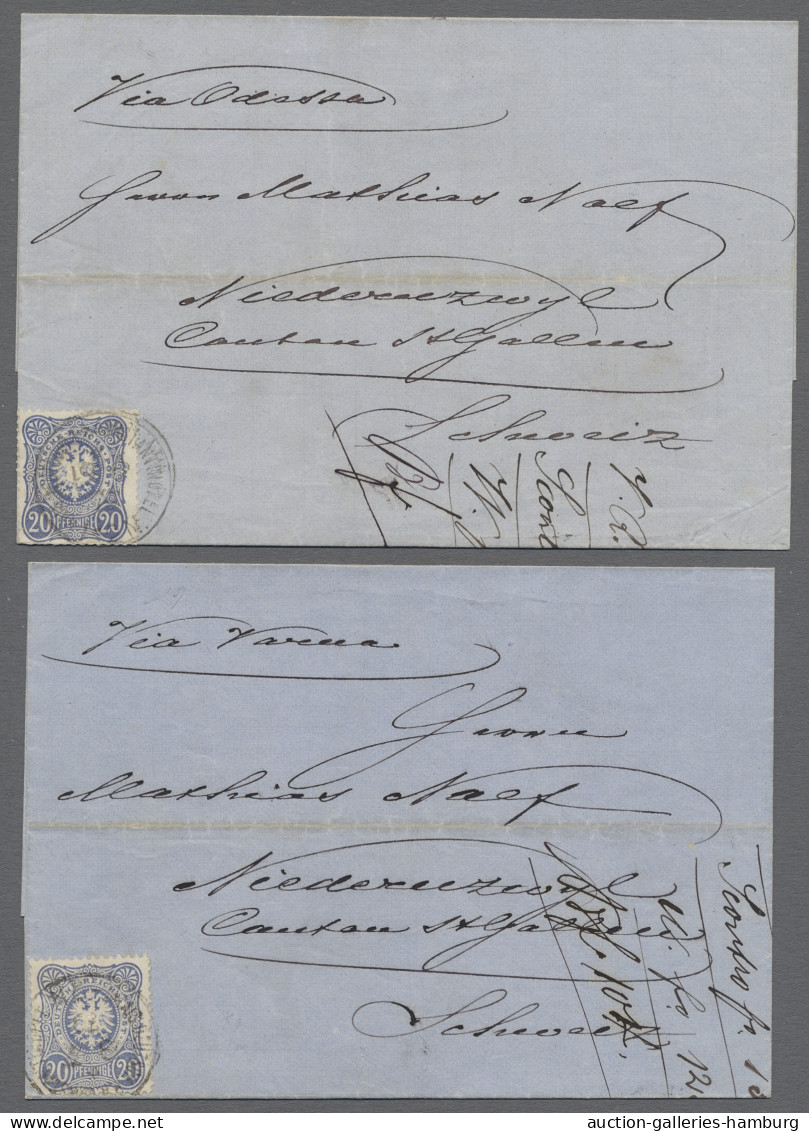 Via Odessa
Herrn Mathias Naef
Niederuzwyl
Canton St Gallen
Schweiz
DEUTSCHE REICHS-POST
20 PFENNIGE 20
Via Varna
Herrn
Mathias Naef
Niederuzwyl
Canton St Gallen
Schweiz
20 PFENNIGE 20
auction-galleries-hamburg